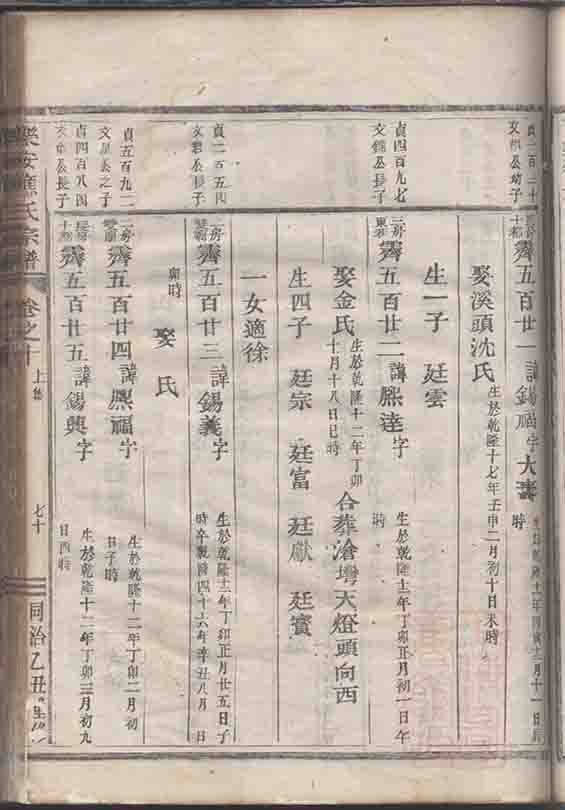 貞二百三十
文郁公幼子
齊五百廿一 諱錫福 字大壽
時
娶溪頭沈氏 生於乾隆十七年壬申二月初十日未時
生一子 廷雲
貞四百九七
文錦公長子
二房
東巷
齊五百廿二 諱熙達 字
生於乾隆十二年丁卯正月初一日午
時
娶金氏 生於乾隆十二年丁卯
十月十八日巳時
合葬滄灣大燈頭向西
生四子 廷宗 廷富 廷獻 廷賓
一女適徐
貞二百五四
文彩公長子
齊五百廿三 諱錫義 字
生於乾隆十二年丁卯正月廿五日子
時卒乾隆四十六年辛丑八月 日
卯時
娶 氏
貞五百九二
公之子
二房
齊五百廿四 諱熙福 字
生於乾隆十二年丁卯二月初
日子時
貞四百八四
公長子
齊五百廿五 諱錫興 字
生於乾隆十二年丁卯三月初九
日酉時
樂安 氏宗譜 卷之十 上集 七十 同治乙丑